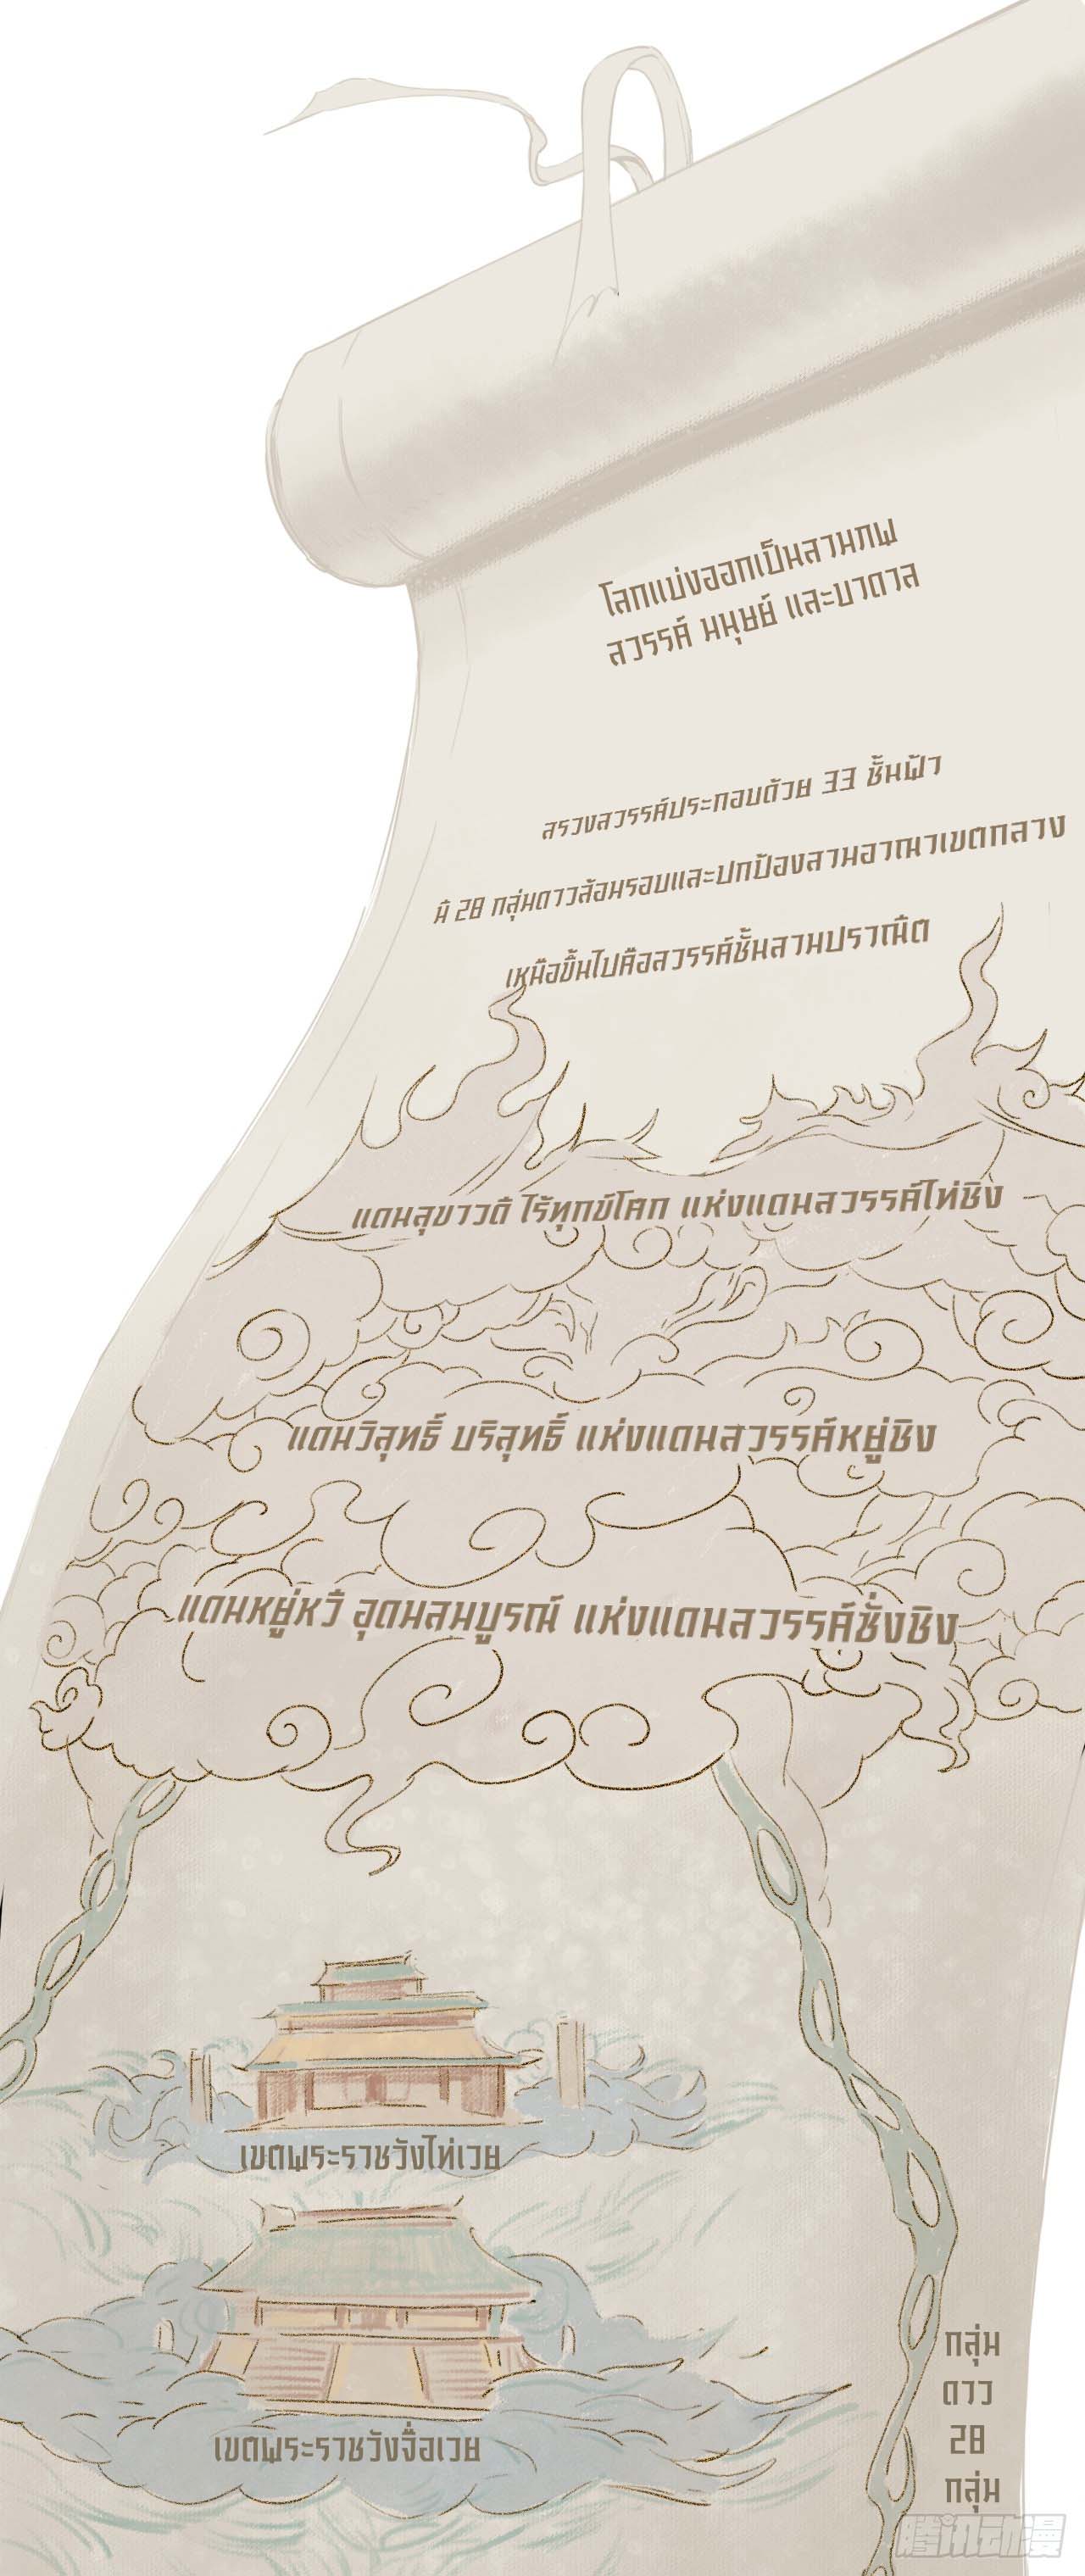 โลกแบ่งออกเป็นสามภพ
สวรรค์ มนุษย์ และบาดาล
สรวงสวรรค์ประกอบด้วย 33 ชั้นฟ้า
มี 28 กลุ่มดาวล้อมรอบและปกป้องสามอาณาเขตกลาง
เหนือขึ้นไปคือสวรรค์ชั้นสามปราณีต
แดนสุขาวดี ไร้ทุกข์โศก แห่งแดนสวรรค์ไท่ชิง
แดนวิสุทธิ์ บริสุทธิ์ แห่งแดนสวรรค์หยู่ชิง
แดนหยู่หวี อุดมสมบูรณ์ แห่งแดนสวรรค์ซั่งชิง
เขตพระราชวังไท่เวย
เขตพระราชวังจื่อเวย
กลุ่ม
ดาว
28
กลุ่ม
腾讯动漫